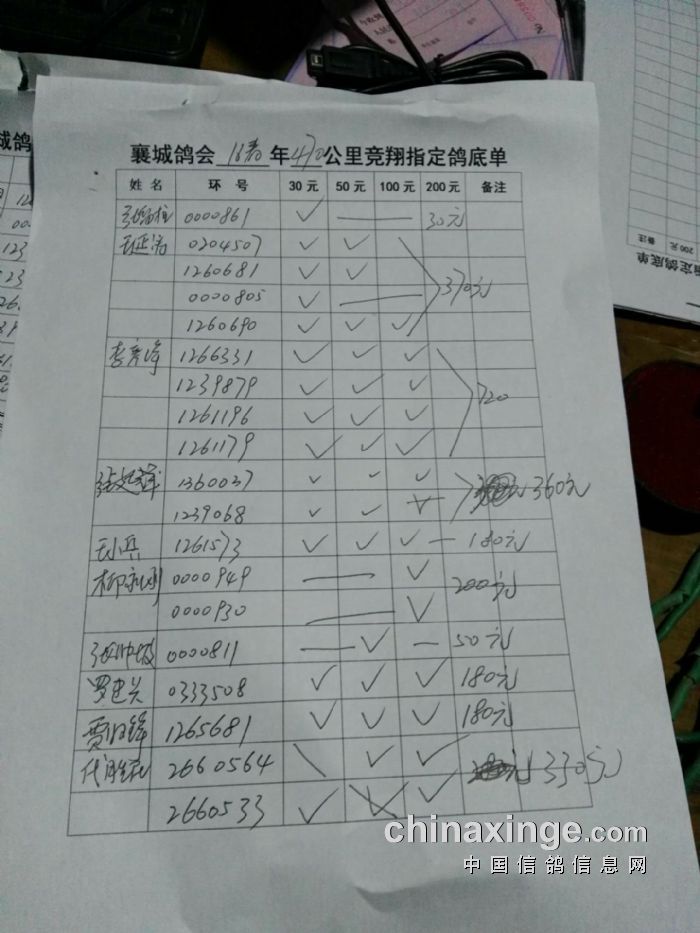 襄城鸽会 16春 年 470 公里竞翔指定鸽底单
姓 名 环 号 30元 50元 100元 200元 备注
0000861 ✓ — 30元
0204507 ✓ ✓ \
1260681 ✓ ✓
0000805 ✓ — 370元
1260690 ✓ ✓ ✓
李彦峰 1266331 ✓ ✓ ✓
1239879 ✓ ✓ ✓ 720
1261196 ✓ ✓ ✓
1261179 ✓ ✓ ✓
1360027 ✓ ✓ ✓ 360元
1239068 ✓ ✓ ✓
1261573 ✓ ✓ ✓ — 180元
0000949 — ✓ 200元
0000930 — ✓
0000811 — ✓ — 50元
罗建兴 0333508 ✓ ✓ ✓ 180元
1265681 ✓ ✓ ✓ 180元
2660564 \ ✓ ✓ 330元
2660533 ✓ ✓ ✓
chinaxinge.com
中国信鸽信息网
200元
备注
指定鸽底单
城鸽